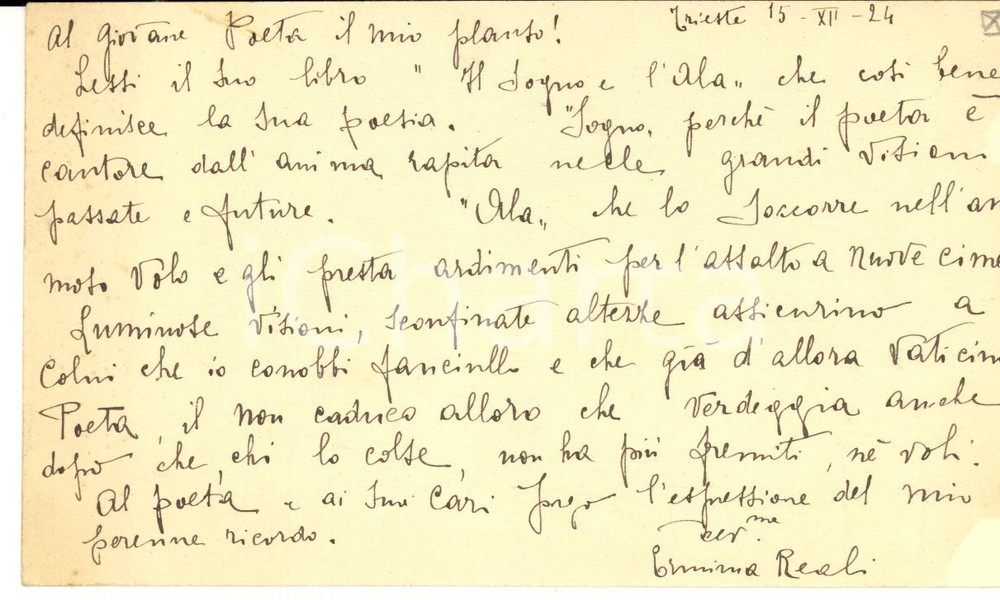 Trieste 15 - XII - 24
Al giovane Poeta il mio plauso!
Lessi il Suo libro " Il Sogno e l'Ala „ che così bene
definisce la Sua poesia. "Sogno„ perchè il poeta è
cantore dall'anima rapita nelle grandi visioni
passate e future. "Ala„ che lo soccorre nell'an
moso volo e gli presta ardimenti per l'assalto a nuove cime
Luminose visioni, sconfinate altezze assicurino a
Colui che io conobbi fanciullo e che già d'allora vaticin
Poeta, il non caduco alloro che verdeggia anche
dopo che, chi lo colse, non ha più fremiti, nè voli.
Al poeta e ai Suoi Cari porgo l'espressione del mio
perenne ricordo.
dev.me
Erminia Reali
iCharta